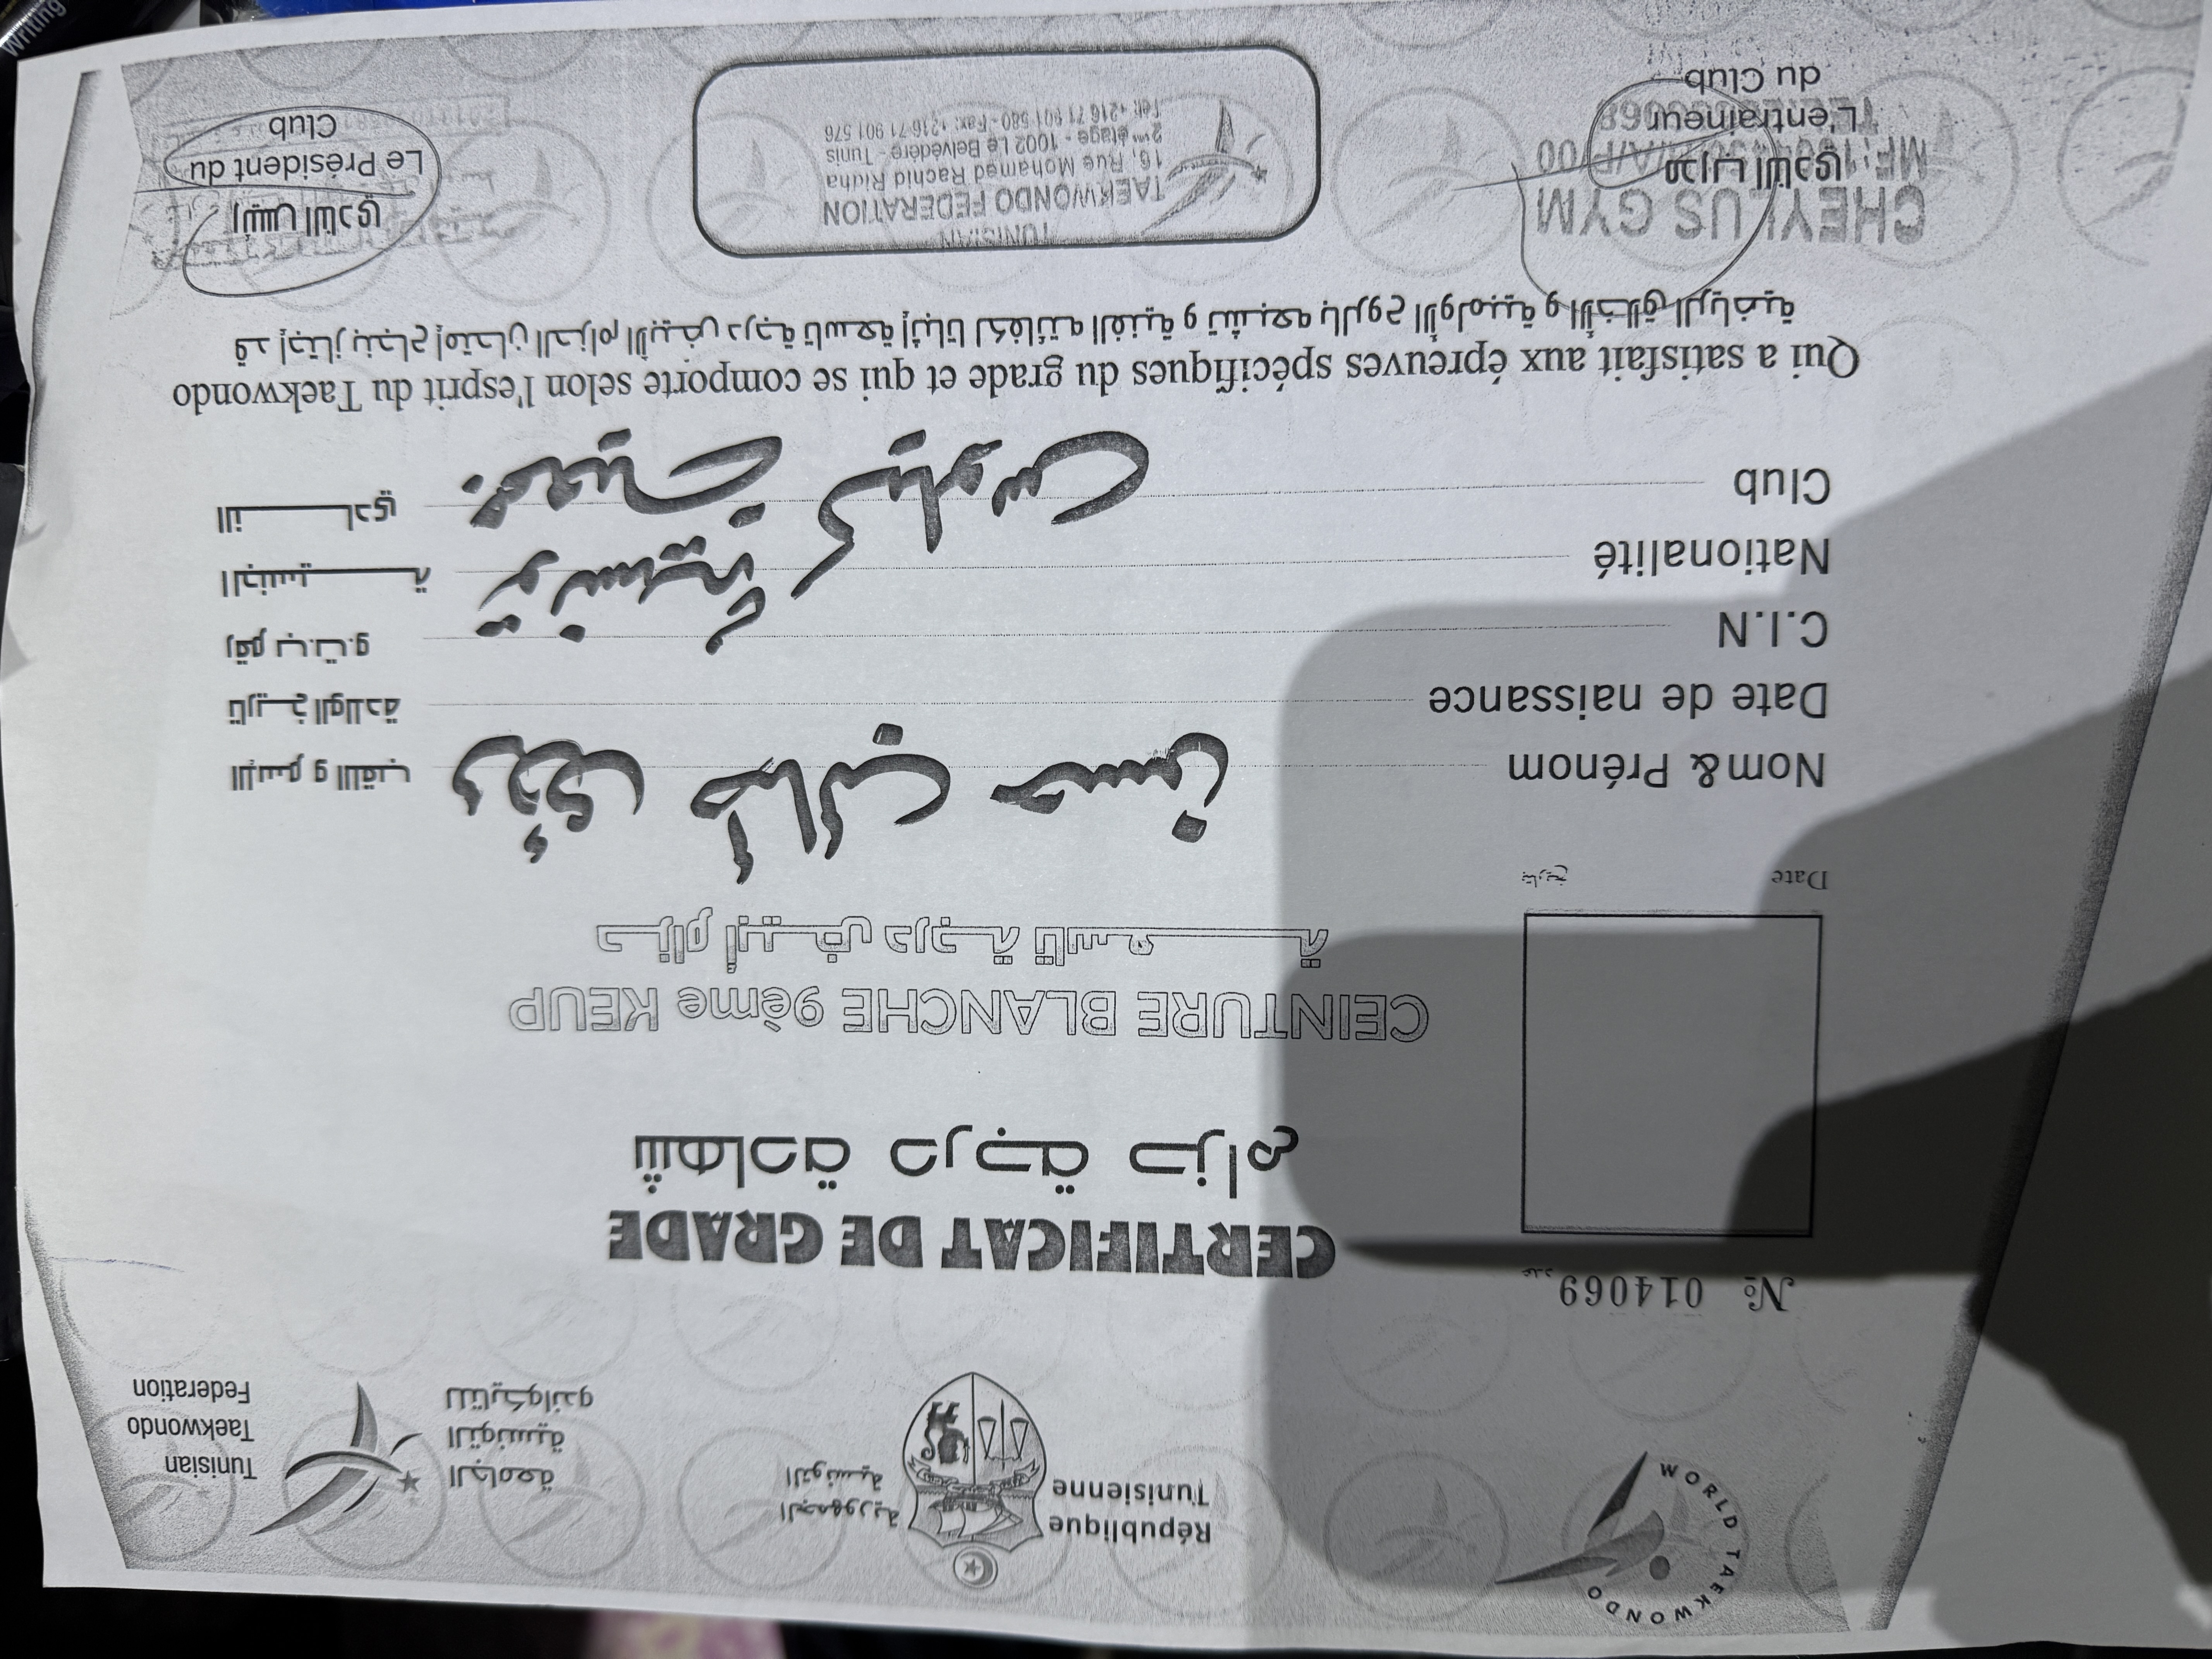 WORLD TAEKWONDO
République
Tunisienne
الجمهورية
التونسية
الجامعة
التونسية
للتايكواندو
Tunisian
Taekwondo
Federation
№ 014069 عدد
CERTIFICAT DE GRADE
شهادة درجة حزام
CEINTURE BLANCHE 9ème KEUP
حزام أبيض درجة تاسعة
Date بتاريخ
Nom& Prénom حسن الإسم و اللقب
Date de naissance تاريخ الولادة
C.I.N رقم ب.ت.و
Nationalité تونسية الجنسية
Club النادي
Qui a satisfait aux épreuves spécifiques du grade et qui se comporte selon l'esprit du Taekwondo
قد إجتاز بنجاح إمتحان الحزام الأبيض درجة تاسعة إثباتا لكفائته الفنية و تشبعه بالروح الأولمبية و الأخلاق الرياضية
CHEYLUS GYM
مدرب النادي
L'entraîneur
du Club
TUNISIAN
TAEKWONDO FEDERATION
16, Rue Mohamed Rachid Ridha
2ème étage - 1002 Le Belvédère - Tunis
Tél: +216 71 901 580 - Fax: +216 71 901 576
رئيس النادي
Le Président du
Club
Writing